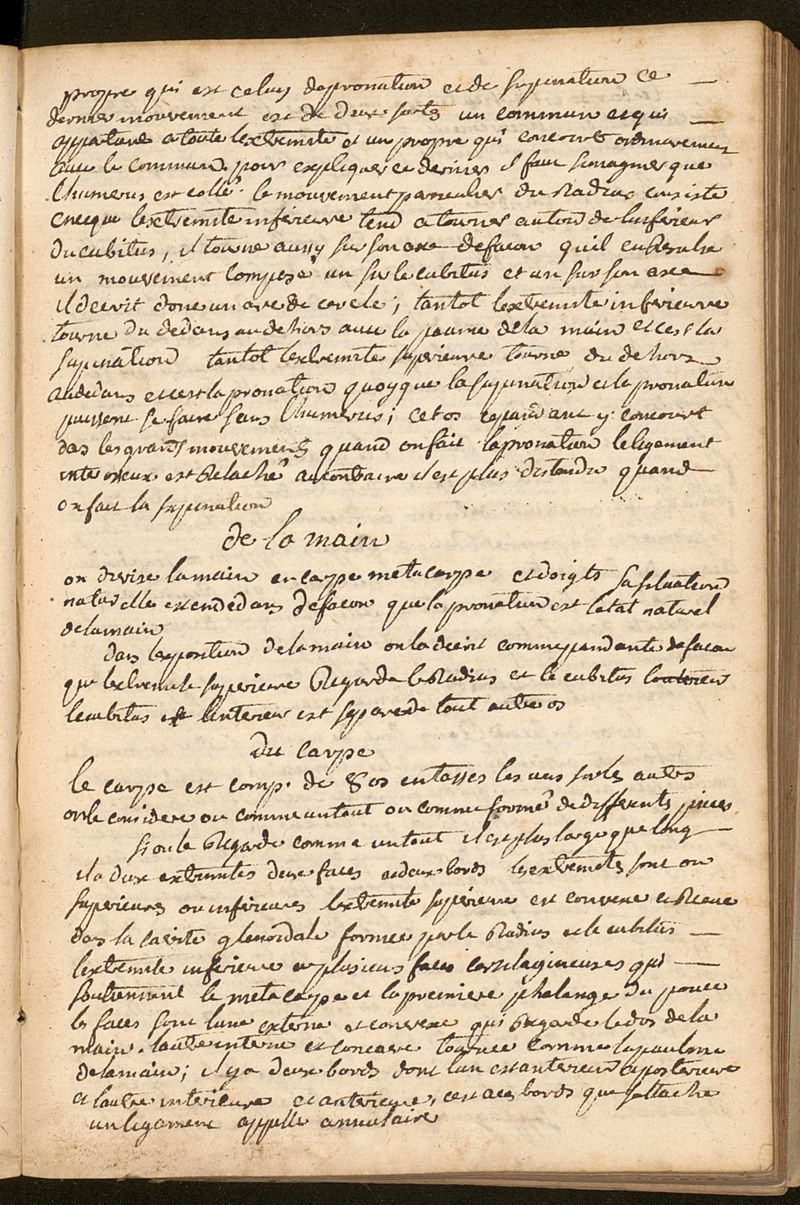 propre qui est celuy depronation et de supination ce
dernier mouvement est de deux sorts un commun et qui
appartient a toute lextremité et un propre qui concourt ordinairement
avec le commun. pour expliquer ce dernier il faut simaginer que
lhumerus est collé. le mouvement particulier du Radius consiste
en ce que lextremité inferieure tend a tourner autour de linferieur
Du cubitus, il tourne aussy sur son axe de facon quil en Resulte
un mouvement composé un sur le cubitus et un sur son axe
il decrit donc un arc de cercle; tantot lextremite inferieure
tourne du dedans au dehors avec la paume de la main et cest la
supination tantot lextremite superieure tourne du dehors
au dedans et cest la pronation quoyque la supination et la pronation
puissent se faire sans lhumerus; cet os cependant y concourt
dans les grands mouvements quand on fait la pronation le ligament
inter osseux est Relaché au contraire il est plus distendu quand
on fait la supination
de la main
on divise la main en carpe metacarpe et doigts sa situation
naturelle est en dedans de facon que la pronation est letat naturel
de la main
dans lexposition de la main on la decrit comme pendante de facon
que lextremite superieure Regarde le Radius et le cubitus
le cubitus est linterieur est separé de tout autre os
Du carpe
le carpe est comp. de 8 os entassés les uns sur les autres
on le considere ou comme un tout ou comme formé de differents pieces
si on le Regarde comme un tout il est plus large que long
il a deux extremites deux faces et deux bords les extremités sont ou
superieures ou inferieures lextremité superieure est convexe et Recue
dans la cavité glenoidale formée par le Radius et le cubitus
lextremite inferieure a plusieurs faces cartilagineuses qui
soutiennent le metacarpe et la premiere phalange du pouce
les faces sont lune externe et convexe qui Regarde le dos de la
main. lautre interne et concave tournée comme la paulme
de la main; il y a deux bords dont lun est anterieur a posterieure
et lautre interieure et anterieure, cest a ces bords que sattache
un ligament appellé annulaire